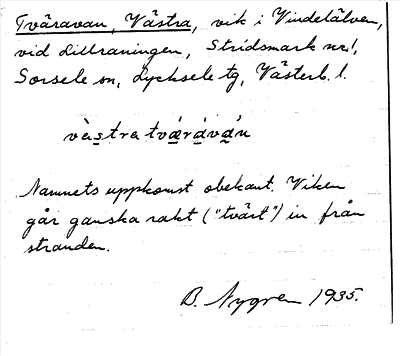 Tväravan, Västra, vik i Vindelälven,
vid Lillraningen, Stridsmark nr 1,
Sorsele sn, Lycksele tg, Västerb. l.
västra tvǽráván
Namnets uppkomst obekant. Viken
går ganska rakt ("tvärt") in från
stranden.
B. Nygren 1935.